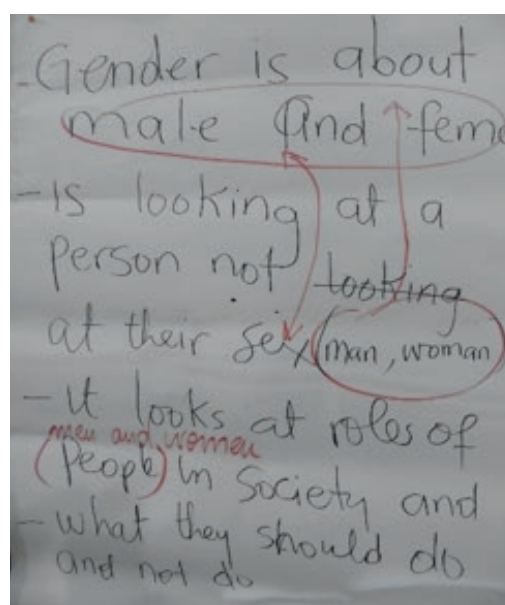 - Gender is about
male and fema
- Is looking at a
person not looking
at their sex (man, woman)
- It looks at roles of
men and women
(people) in society and
- what they should do
and not do